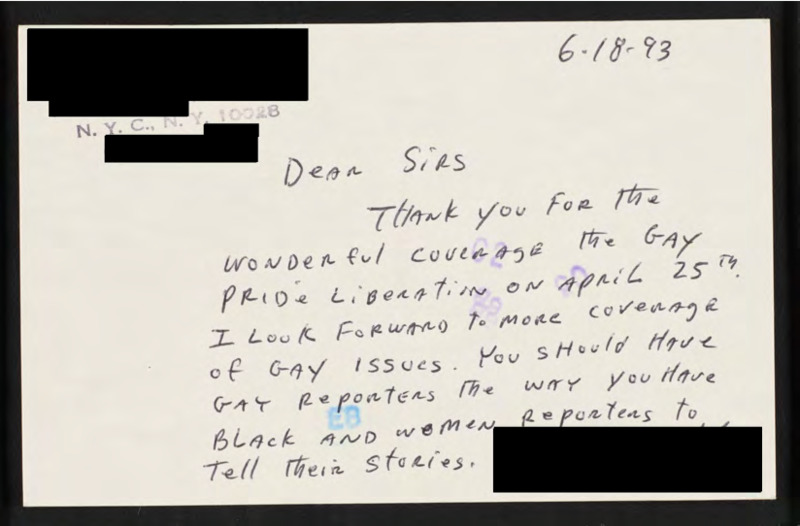 6-18-93
N. Y. C., N. Y. 10028
Dear Sirs
THANK you FOR the
WONDERful COVERAGE the GAY
PRIDE LIBERATION ON APRIL 25TH.
I LOOK FORWARD to MORE COVERAGE
of GAY ISSUES. YOU SHOULD HAVE
GAY REPORTERS the WAY YOU HAVE
BLACK AND WOMEN REPORTERS to
Tell their Stories.
EB